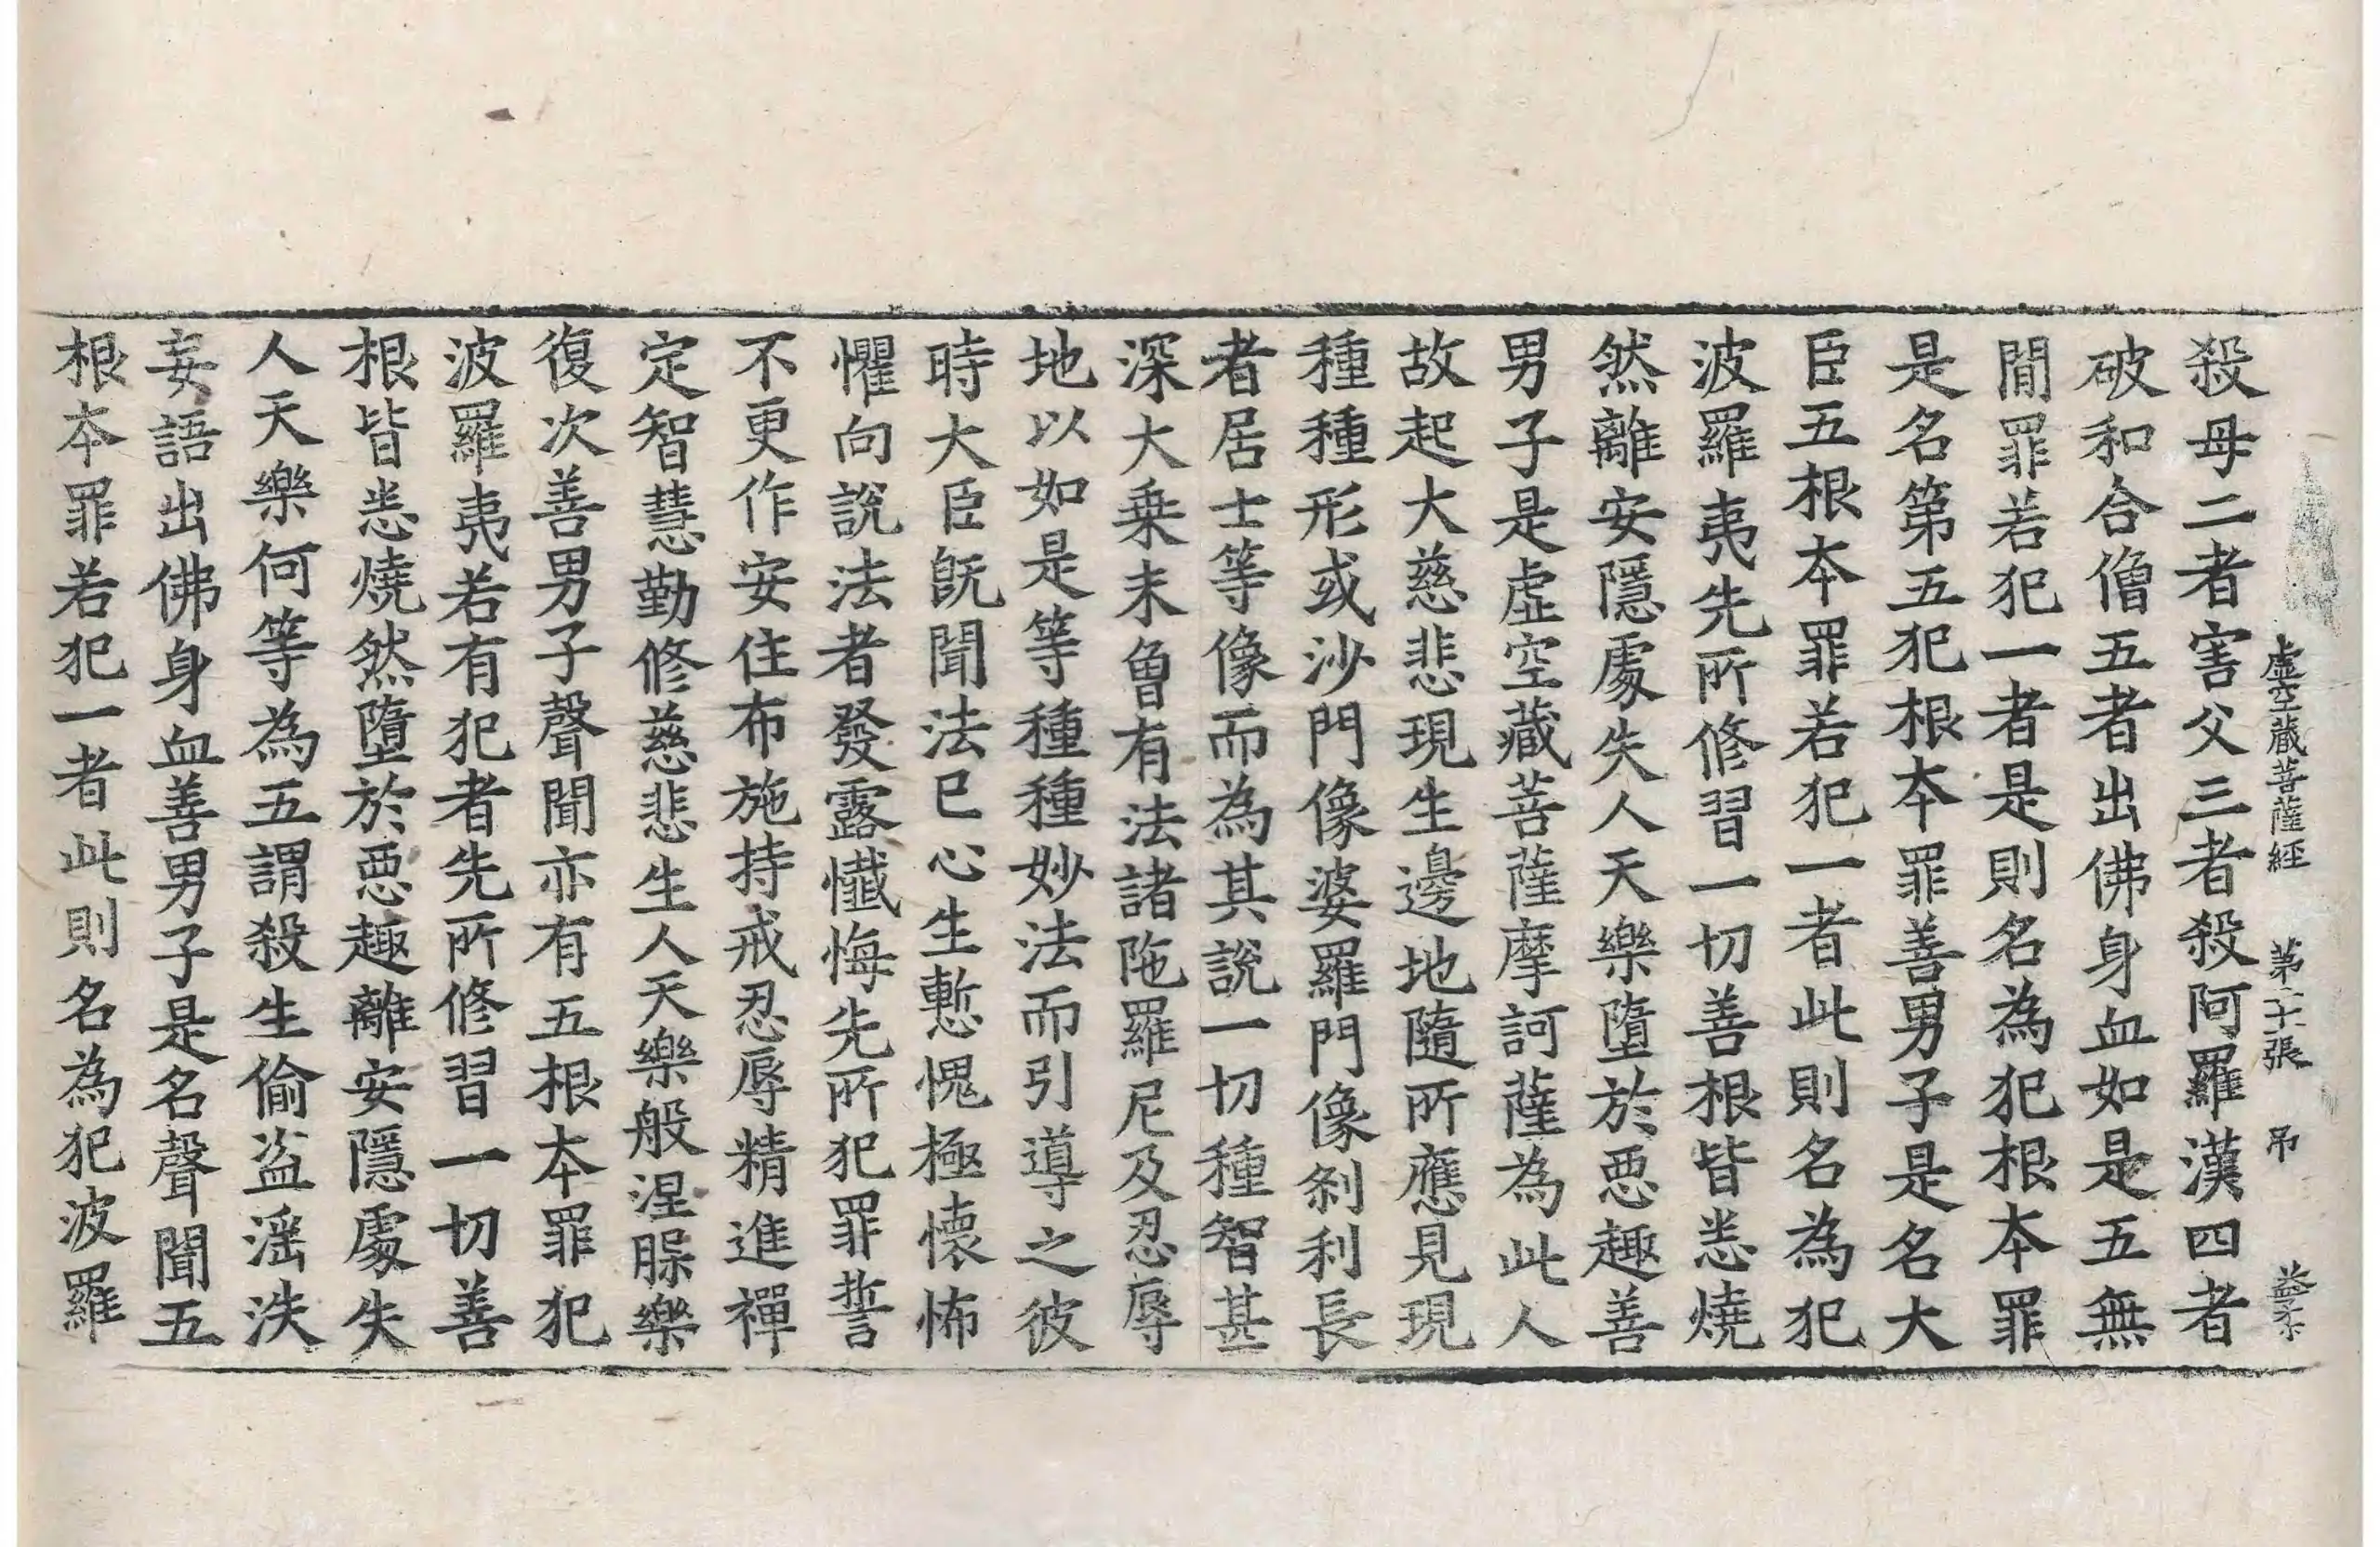 虛空藏菩薩經 第二十張 弔
殺母二者害父三者殺阿羅漢四者
破和合僧五者出佛身血如是五無
閒罪若犯一者是則名為犯根本罪
是名第五犯根本罪善男子是名大
臣五根本罪若犯一者此則名為犯
波羅夷先所修習一切善根皆悉燒
然離安隱處失人天樂墮於惡趣善
男子是虛空藏菩薩摩訶薩為此人
故起大慈悲現生邊地隨所應見現
種種形或沙門像婆羅門像刹利長
者居士等像而為其說一切種智甚
深大乘未曾有法諸陁羅尼及忍辱
地以如是等種種妙法而引導之彼
時大臣旣聞法已心生慙愧極懷怖
懼向說法者發露懺悔先所犯罪誓
不更作安住布施持戒忍辱精進禪
定智慧勤修慈悲生人天樂般涅槃樂
復次善男子聲聞亦有五根本罪犯
波羅夷若有犯者先所修習一切善
根皆悉燒然墮於惡趣離安隱處失
人天樂何等為五謂殺生偷盜淫泆
妄語出佛身血善男子是名聲聞五
根本罪若犯一者此則名為犯波羅